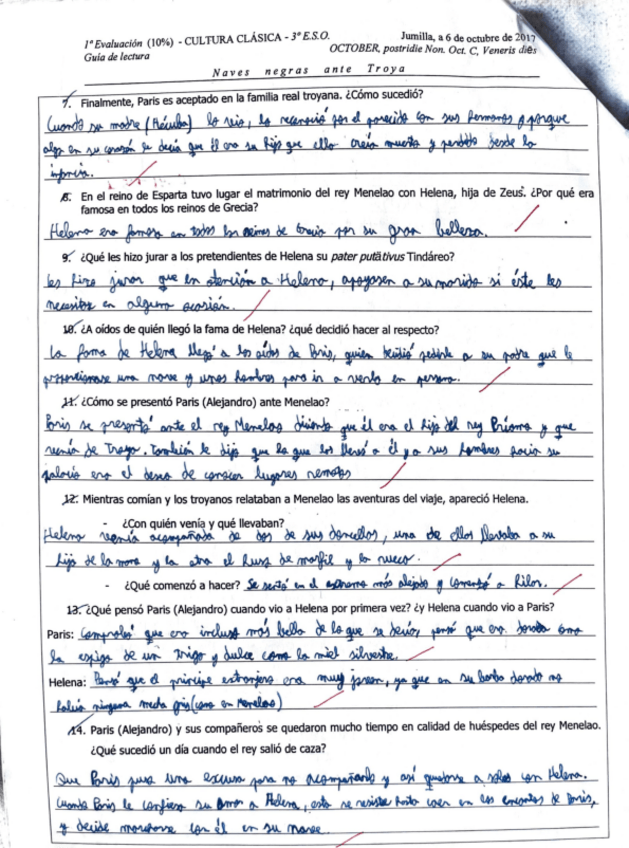 1ª Evaluación (10%) - CULTURA CLÁSICA - 3º E.S.O.
Jumilla, a 6 de octubre de 2017
Guía de lectura
OCTOBER, postridie Non. Oct. C, Veneris dies
Naves negras ante Troya
7. Finalmente, Paris es aceptado en la familia real troyana. ¿Cómo sucedió?
Cuando su madre (Hécuba) lo vio, lo reconoció por el parecido con sus hermanos y porque
algo en su corazón le decía que él era su hijo que ella creía muerto y perdido desde la
infancia.
8. En el reino de Esparta tuvo lugar el matrimonio del rey Menelao con Helena, hija de Zeus. ¿Por qué era
famosa en todos los reinos de Grecia?
Helena era famosa en todos los reinos de Grecia por su gran belleza.
9. ¿Qué les hizo jurar a los pretendientes de Helena su pater putātivus Tindáreo?
Les hizo jurar que en atención a Helena, apoyasen a su marido si éste les
necesitas en alguna ocasión.
10. ¿A oídos de quién llegó la fama de Helena? ¿qué decidió hacer al respecto?
La fama de Helena llegó a los oídos de Paris, quien decidió pedirle a su padre que le
proporcionase una nave y unos hombres para ir a verla en persona.
11. ¿Cómo se presentó Paris (Alejandro) ante Menelao?
Paris se presentó ante el rey Menelao diciendo que él era el hijo del rey Príamo y que
venía de Troya. También le dijo que lo que los llevó a él y a sus hombres hacia su
palacio era el deseo de conocer lugares remotos
12. Mientras comían y los troyanos relataban a Menelao las aventuras del viaje, apareció Helena.
- ¿Con quién venía y qué llevaban?
Helena venía acompañada de dos de sus doncellas, una de ellas llevaba a su
hijo de la mano y la otra el huso de marfil y la rueca.
- ¿Qué comenzó a hacer? Se sentó en el extremo más alejado y comenzó a hilar.
13. ¿Qué pensó Paris (Alejandro) cuando vio a Helena por primera vez? ¿y Helena cuando vio a Paris?
Paris: Comprobó que era incluso más bella de lo que se decía, pensó que era dorada como
la espiga de un trigo y dulce como la miel silvestre.
Helena: Pensó que el príncipe extranjero era muy joven, ya que en su barba dorada no
había ninguna mecha gris (como en Menelao)
14. Paris (Alejandro) y sus compañeros se quedaron mucho tiempo en calidad de huéspedes del rey Menelao.
¿Qué sucedió un día cuando el rey salió de caza?
Que Paris puso una excusa para no acompañarlo y así quedarse a solas con Helena.
Cuando Paris le confiesa su amor a Helena, esta se resiste hasta caer en los encantos de Paris,
y decide marcharse con él en su nave.